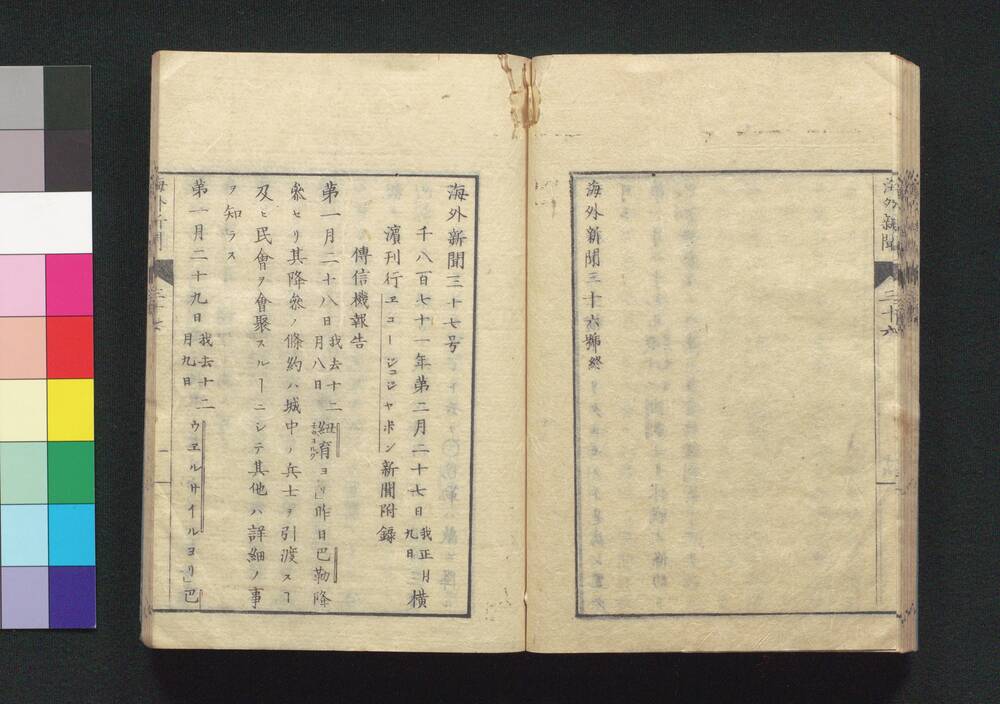 海外新聞
三十六
海外新聞三十六號終
海外新聞三十七号
千八百七十一年第二月二十七日我正月九日橫
濱刊行ヱコージユジヤポン新聞附錄
傳信機報告
第一月二十八日我去十二月八日紐育ヨリ」昨日巴勒降
叅セリ其降叅ノ條約ハ城中ノ兵士ヲ引渡スヿ
及ヒ民會ヲ會聚スルヿニシテ其他ハ詳細ノ事
ヲ知ラス
第一月二十九日我去十二月九日ウヱルサイルヨリ」巴
海外新聞